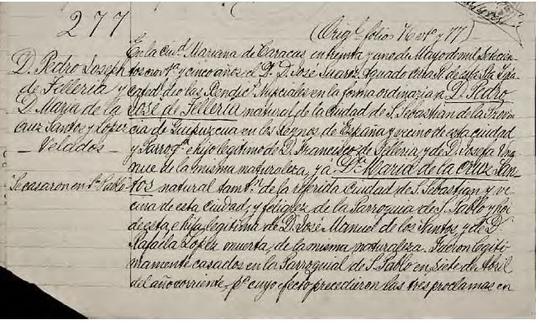 277
(Orig.l folio 76 vto y 77)
D. Pedro Joseph
de Illeria y
D. Maria de la
Cruz Santos y Lopez
Velados
Se casaron en Sn Pablo
En la Ciud. Mariana de Caracas en treinta y uno de Mayo de mil Setecien
y cinco años el Dr. D. José Suarez Aguado de esta Sta. Igla.
Catedl. dio las Bendic.s Nupciales en la forma ordinaria a D. Pedro
José de Illeria natural de la Ciudad de S. Sebastian de la Provin
cia de Guipuzcua en los Reynos de España y vecino de esta ciudad
y Parroqa. e hijo legitimo de D. Francisco de Illeria, y de D. Josefa
de la misma naturaleza, y á Da. Maria de la Cruz San
tos natural tamn. de la referida Ciudad de S. Sebastian y ve
cina de esta Ciudad, y feligrez de la Parroquia de S. Pablo y hoi
de esta, e hija legitima de D. José Manuel de los Santos, y de Da.
Rafaela Lopez muerta, de la misma naturaleza. Fueron legiti
mamente casados en la Parroquial de S. Pablo en siete de Abril
del año corriente, pa. cuyo efecto precedieron las tres proclamas en